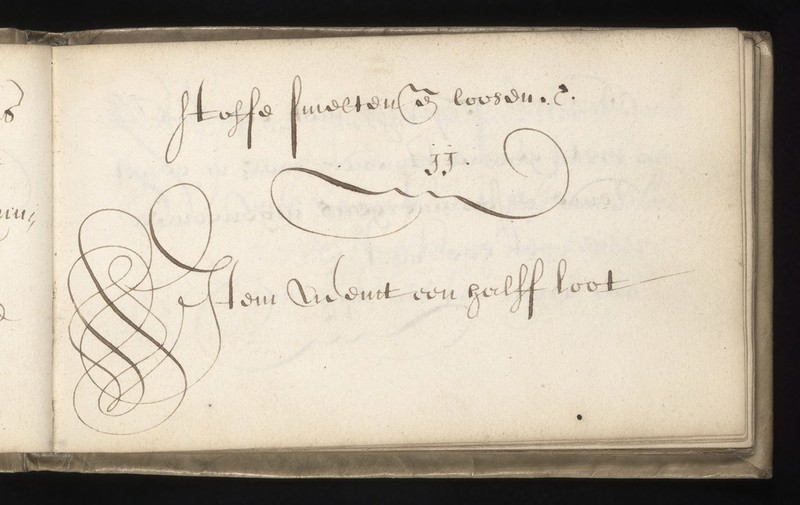 stoffe smelten en loosen. &.
JJ.
Item Neemt een halff loot